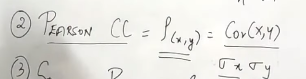 ② PEARSON CC = ρ(x,y) = Cov(x,y)
σx σy
③